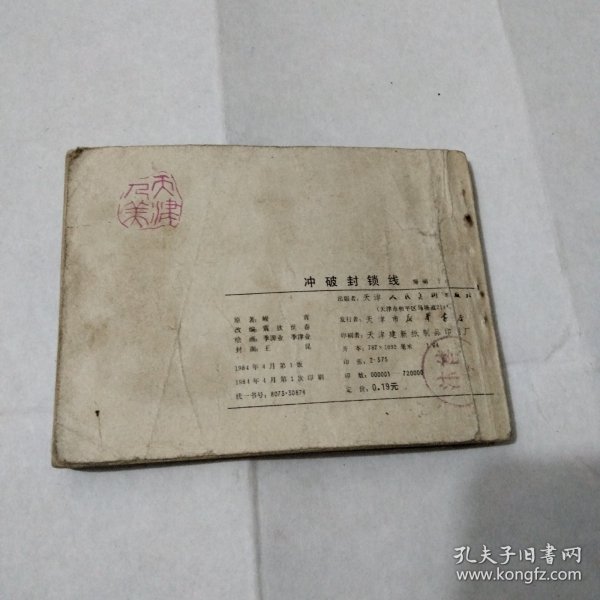 天津
人美
冲破封锁线
出版者：天津人民美术出版社
（天津市和平区马场道
原著：峻青
发行者：天津市新华书店
改编：
印刷者：天津建新纸制品印刷厂
绘画：
开本：787×1092毫米 1/64
封面：王
1984年4月第1版
印张：2·375
1984年4月第1次印刷
印数：000001-720000
统一书号：8073·30874
定价：0.19元
孔夫子旧书网
www.kongfz.com